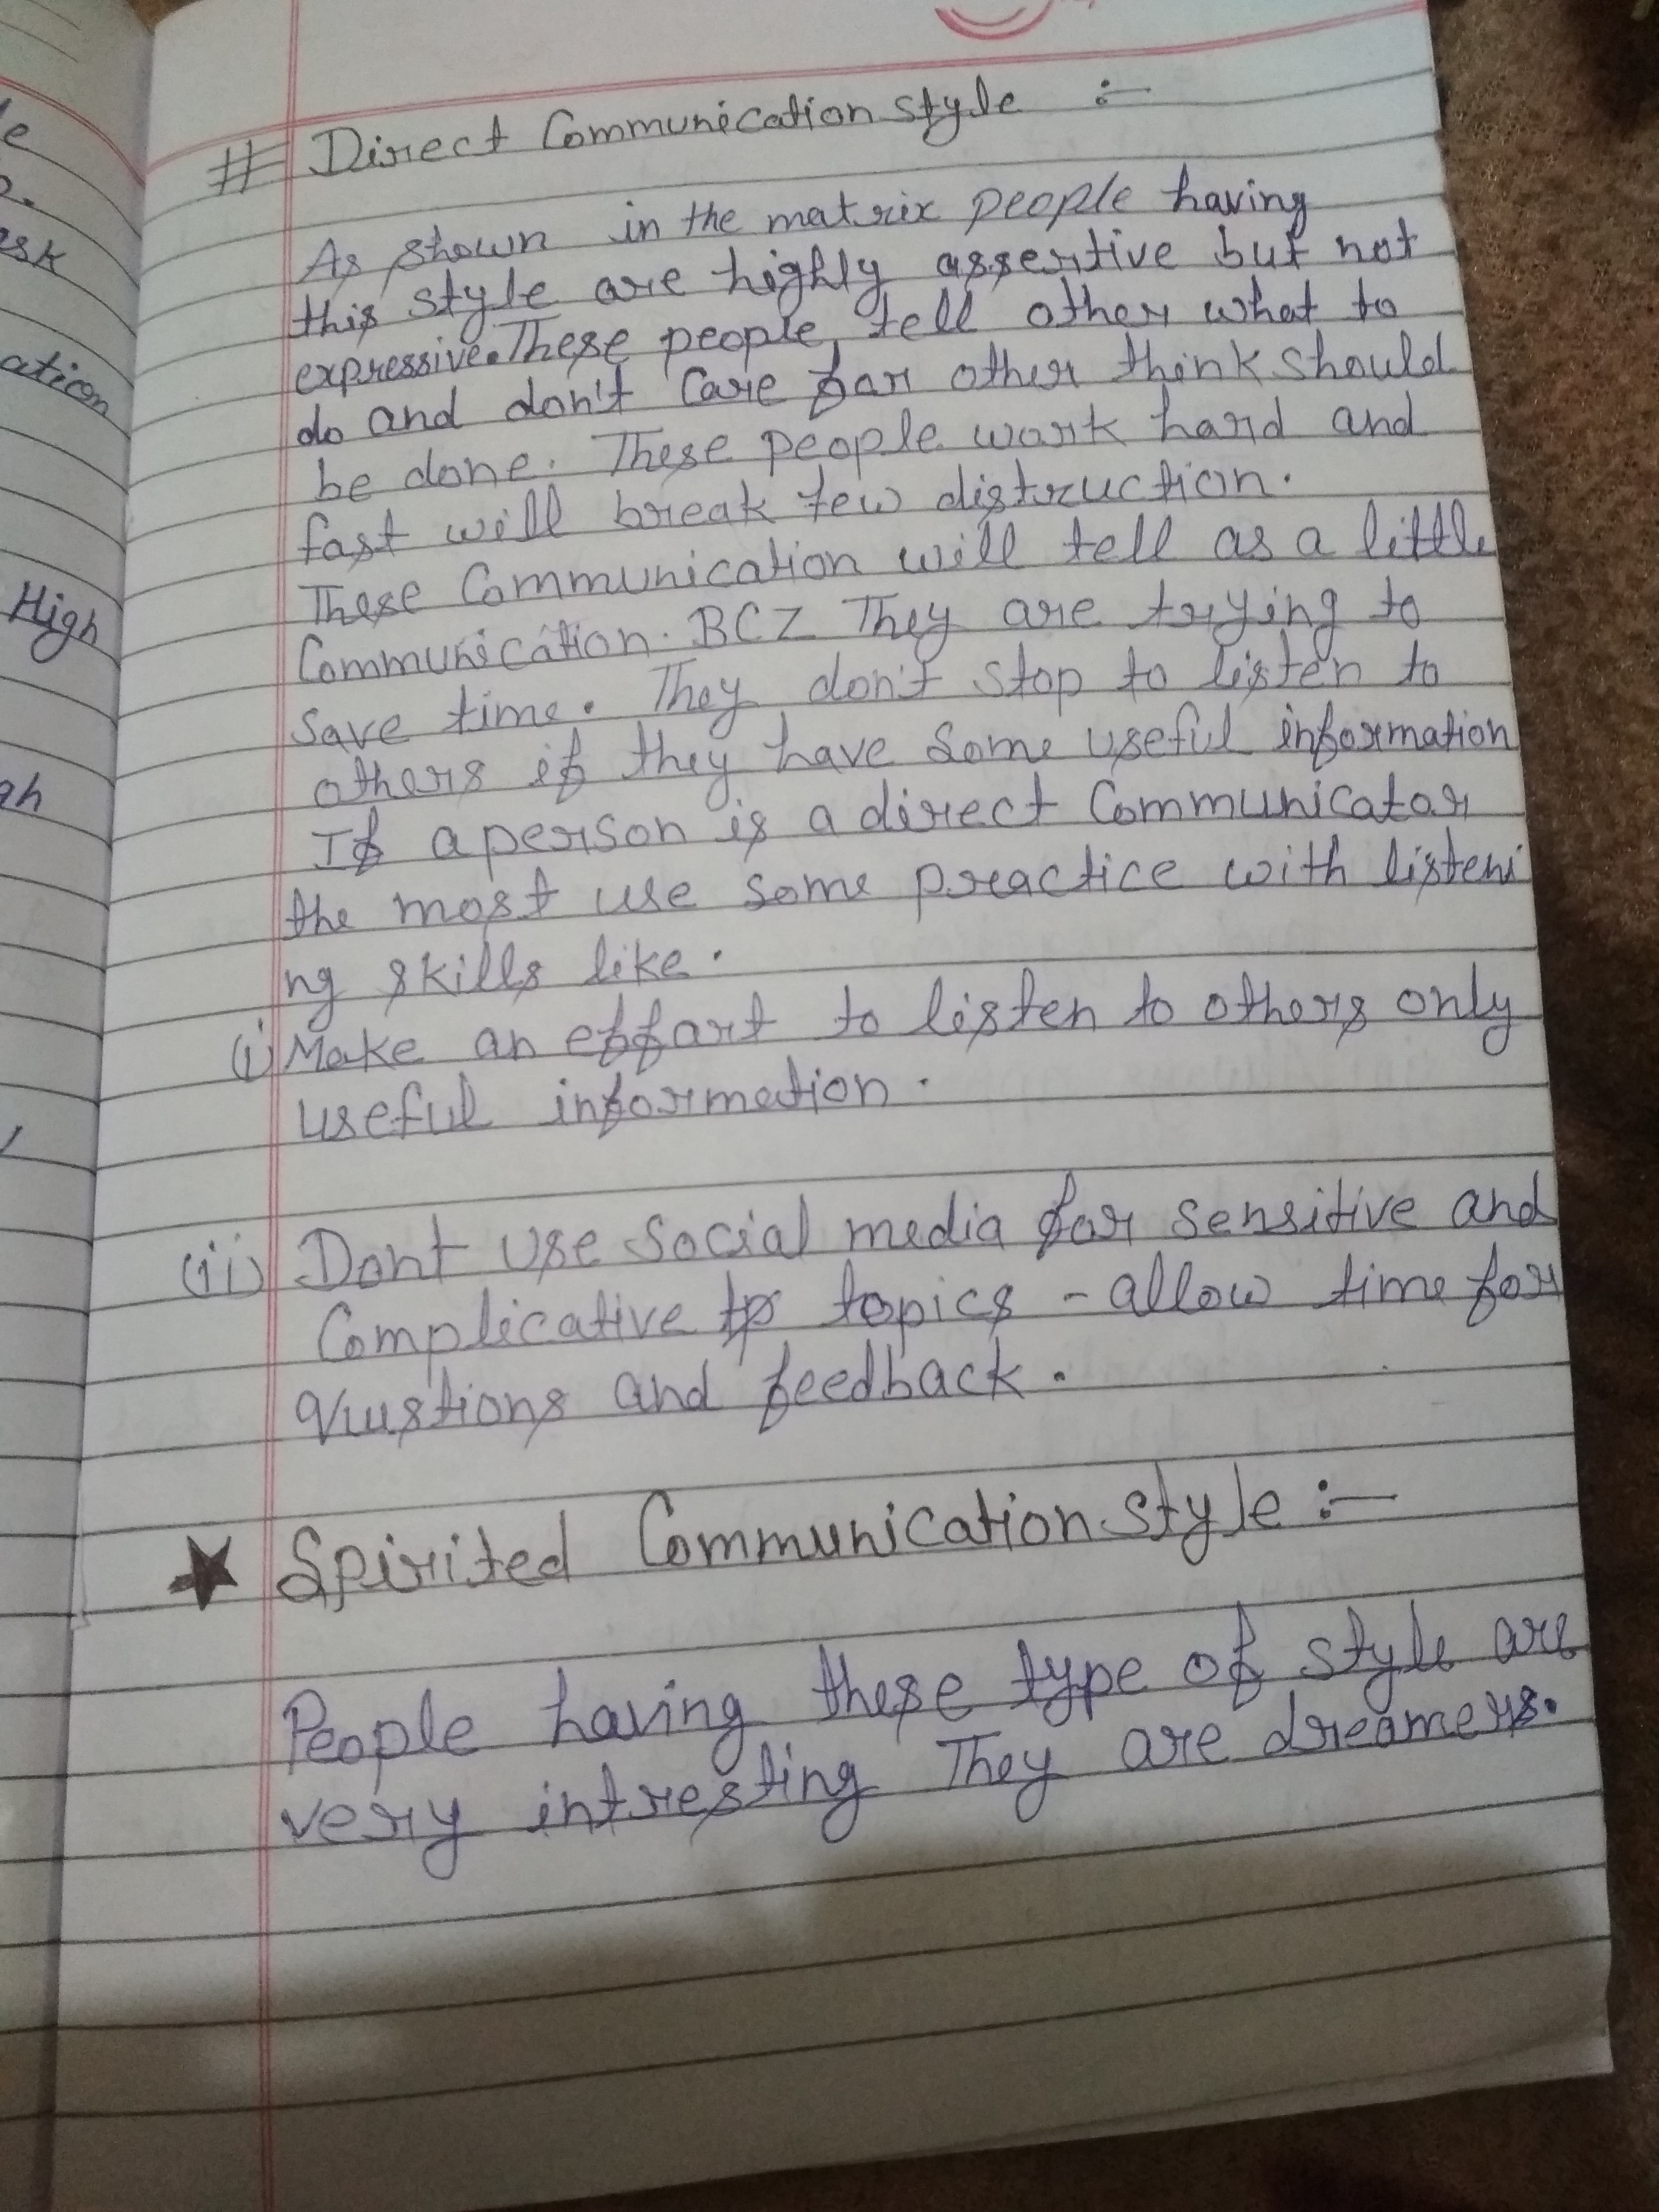 # Direct Communication style :-
As shown in the matrix people having
this style are highly assertive but not
expressive. These people, tell other what to
do and don't care for other think should
be done. These people work hard and
fast will break few distruction.
These Communication will tell as a little
Communication. BCZ They are trying to
save time. They don't stop to listen to
others if they have some useful information
If a person is a direct Communicator
the most use some practice with listeni
ng skills like.
(i) Make an effort to listen to others only
useful information.
(ii) Dont use social media for sensitive and
Complicative topics - allow time for
Questions and feedback.
★ Spirited Communication style :-
People having these type of style are
very intresting They are dreamers.
ation
High